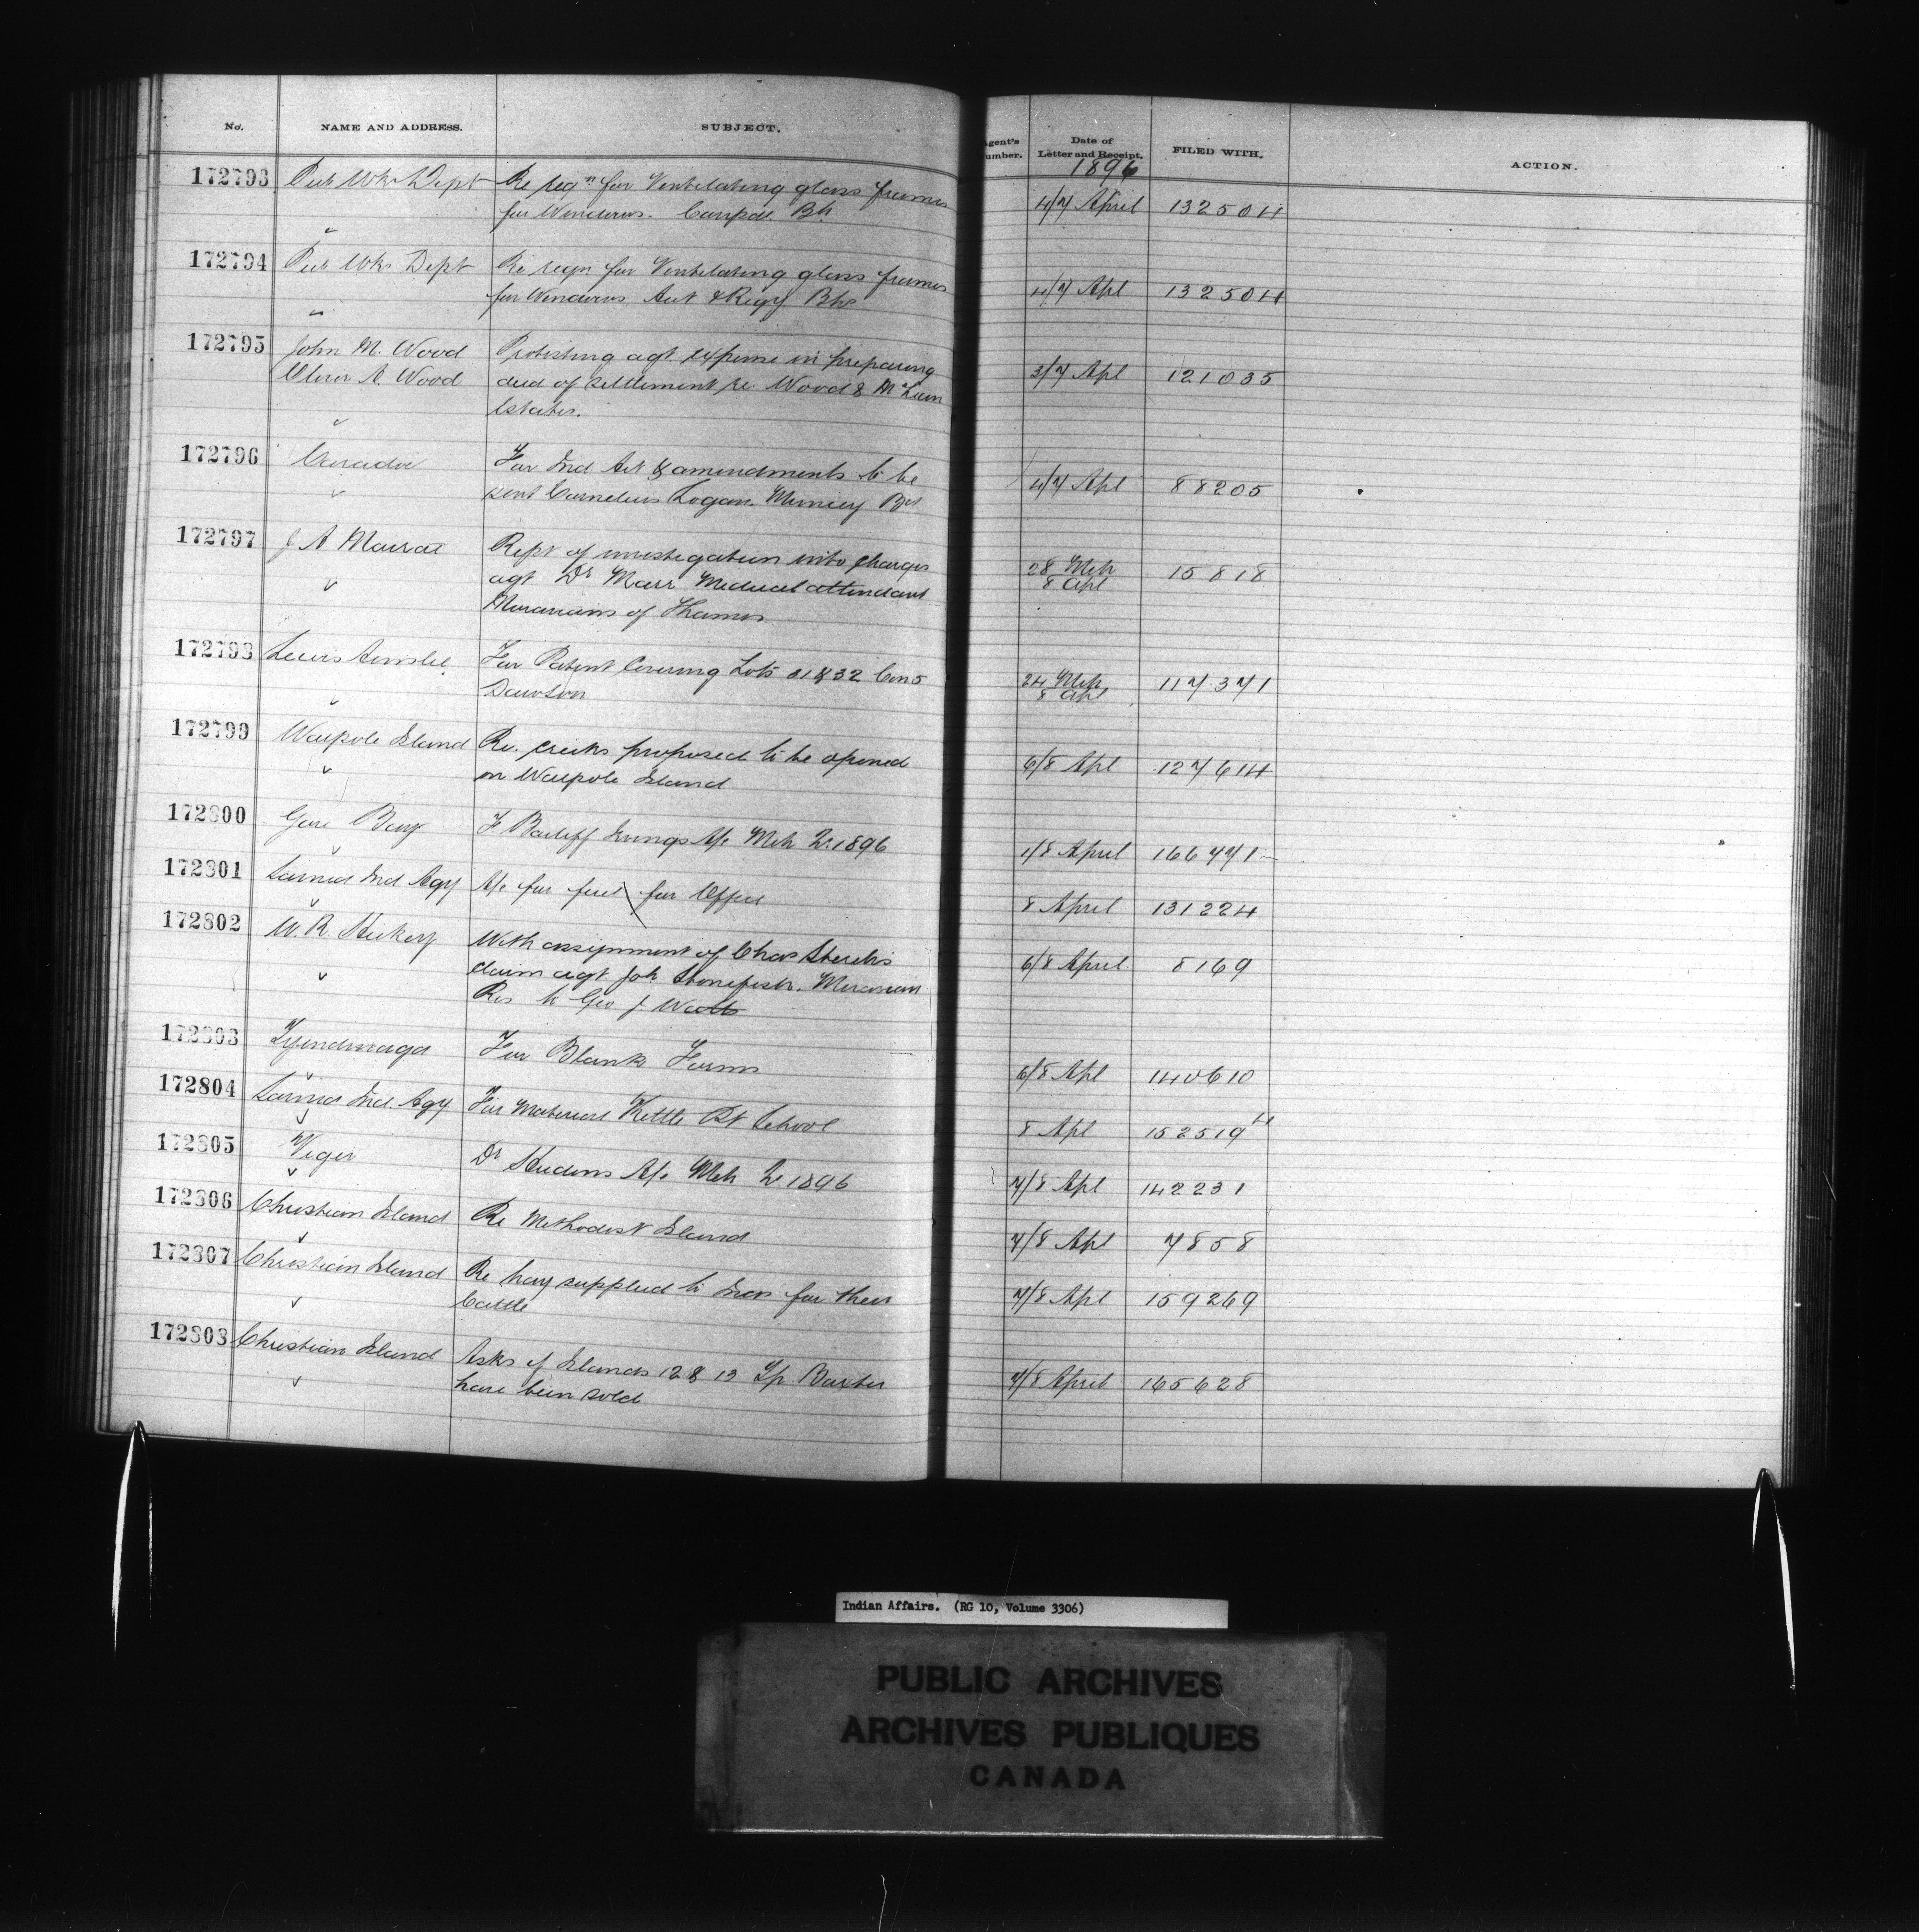 No. NAME AND ADDRESS. SUBJECT. Agent's Number. Date of Letter and Receipt. FILED WITH. ACTION.
1896
172793 Pub Wks Dept Re reqn for Ventilating glass frames 4/7 April 132504
for Windows.
172794 Pub Wks Dept Re reqn for Ventilating glass frames 4/7 Apl 132504
for Windows Act & Regy Bhs
172795 John M. Wood Protesting agt expense in preparing 3/7 Apl 121035
A. Wood deed of settlement re. Wood & McLean
Estates.
172796 Caradoc For Ind Act & amendments to be 4/7 Apl 88205
sent Cornelius Logan. Muncey
172797 J A Rept of investigation into charges 28 Mch 15818
agt Dr Marr Medical attendant 8 Apl
Moravians of Thames
172798 Lewis For Patent Covering Lots 31 & 32 Con 5 24 Mch 117371
Dawson 8 Apl
172799 Walpole Island Re. creeks proposed to be opened 6/8 Apl 127614
on Walpole Island
172800 Gore Bay F Bailiff Irvings A/c Mch Qr 1896 1/8 April 166771
172801 Sarnia Ind Agy A/c for fuel for Office 8 April 131224
172802 W. R. Hickey With assignment of Chas 6/8 April 8169
claim agt Joh Stonefish. Moravian
Res to Geo J Watts
172803 Tyendinaga For Blank Forms 6/8 Apl 140610
172804 Sarnia Ind. Agy For Material Kettle Pt School 8 Apl 152519
172805 Viger Dr A/c Mch Qr 1896 7/8 Apl 142231
172806 Christian Island Re Methodist Island 7/8 Apl 7858
172807 Christian Island Re hay supplied to Inds for their 7/8 Apl 159269
Cattle
172808 Christian Island Asks if Islands 12 & 13 Tp Baxter 7/8 April 165628
have been sold
Indian Affairs. (RG 10, Volume 3306)
PUBLIC ARCHIVES
ARCHIVES PUBLIQUES
CANADA